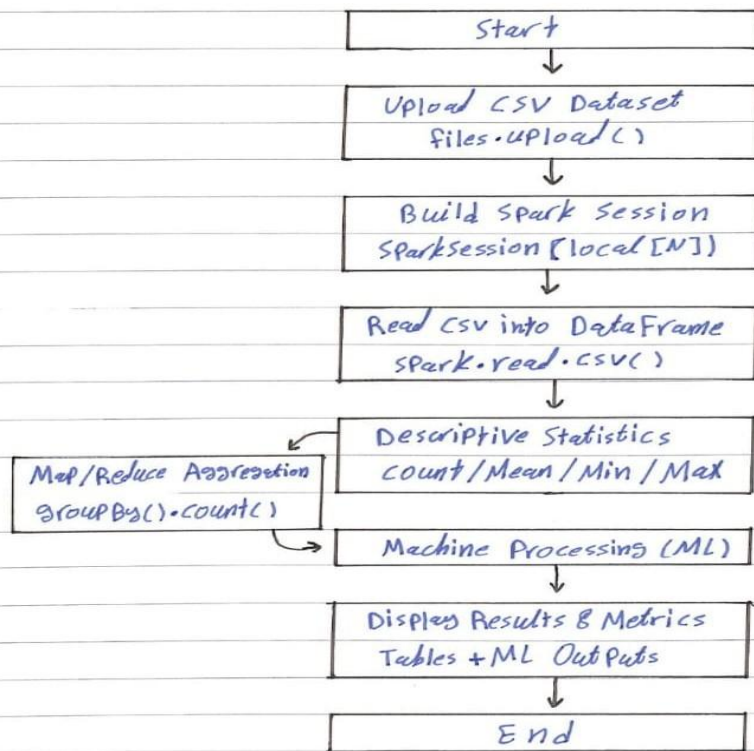 Start
Upload CSV Dataset
files.upload()
Build Spark Session
SparkSession [local[N])
Read CSV into DataFrame
spark.read.csv()
Descriptive Statistics
count/Mean/Min/Max
Map/Reduce Aggregation
groupBy().count()
Machine Processing (ML)
Display Results & Metrics
Tables + ML Outputs
End